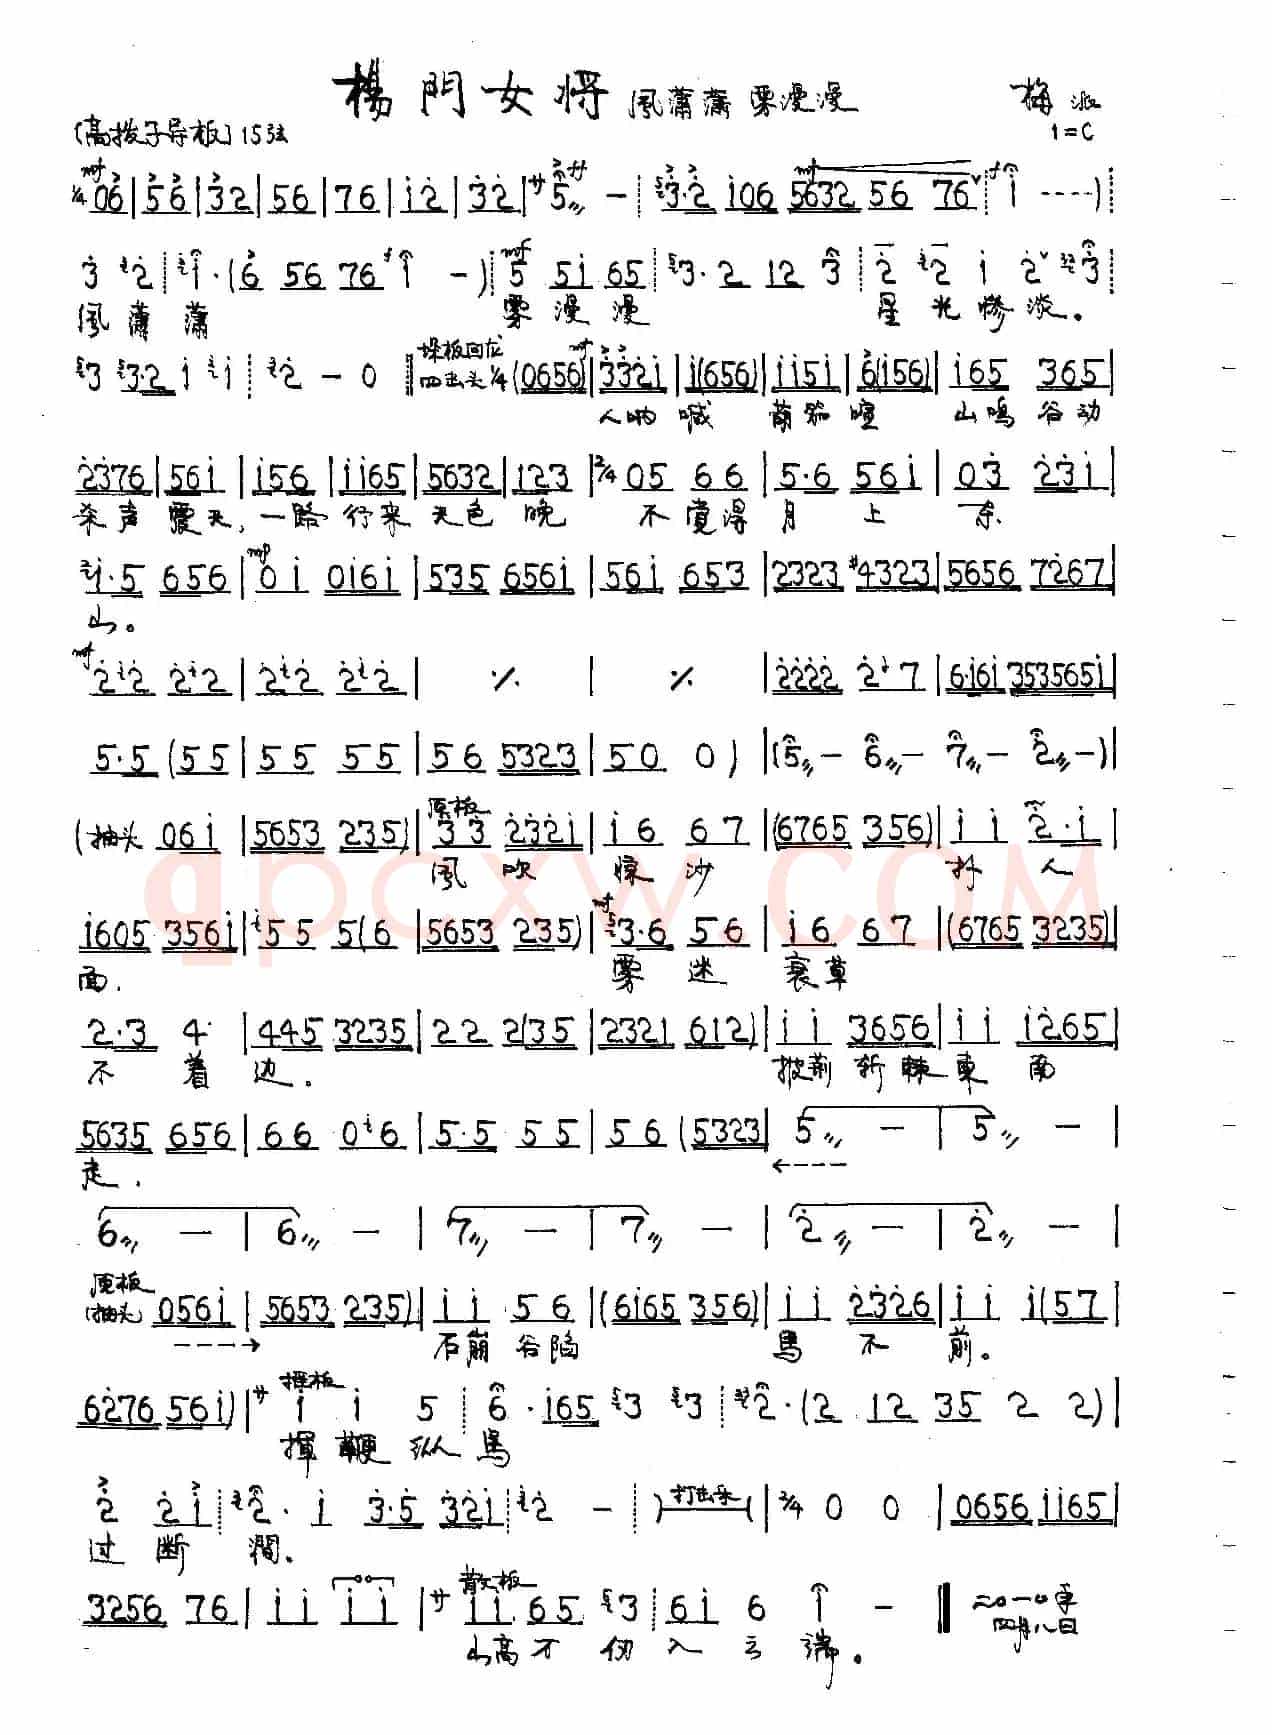 楊門女将 風蕭蕭 雾漫漫 梅派
(高拨子导板) 15弦 1=C
mf 1/4 06|56|32|56|76|i2|32|サ5 - 3·2 i06 5632 56 76 i ----)
3 2 i·(6 56 76 i -) mf 5 5i 65 3·2 12 3 2 2 i 2 3
風蕭蕭 雾漫漫 星光惨淡。
3 3·2 i i 2 - 0 垛板回龙 四击头 1/4 (0656)|332i|i(656)|ii5i|6(i56)|i65 365|
人呐喊 胡笳喧 山鳴谷动
2376|56i|i56|ii65|5632|123|2/4 05 66|5·6 56i|03 23i|
杀声震天,一路行来天色晚 不覚得月上东
i·5 656|mp 0i 0i6i|535 656i|56i 653|2323 #4323|5656 7267|
山。
mf 22 22|22 22|٪|٪|2222 27|6·i6i 353565i|
5·5 (55|55 55|56 5323|50 0)|(5 - 6 - 7 - 2 -)|
(抽头 06i|5653 235)|原板 33 232i|i6 67|(6765 356)|ii 2·i|
風吹惊沙 扑人
i605 356i|55 5(6|5653 235)|mf 3·6 56|i6 67|(6765 3235)|
面. 雾迷衰草
2·3 4·|445 3235|22 2(35|2321 612)|ii 3656|ii i265|
不着边。 披荊斩棘東南
5635 656|66 0 6|5·5 55|56 (5323|5 -|5 -|
走. <----
6 -|6 -|7 -|7 -|2 -|2 -|
原板 (抽头) 056i|5653 235)|ii 56|(6i65 356)|ii 2326|ii i(57|
----> 石崩谷陷 馬不前。
6276 56i)|サ 摇板 i i 5 6·i65 3 3 2·(2 12 35 2 2)|
揮鞭纵馬
2 2i 2·i 3·5 32i 2 - )打击乐(|2/4 0 0|0656 ii65|
过断澗。
3256 76|ii ii|サ 散板 ii 65 3 6i 6 i -‖ 二〇一〇年
四月八日
山高不仞入云端。
qpcxw.com